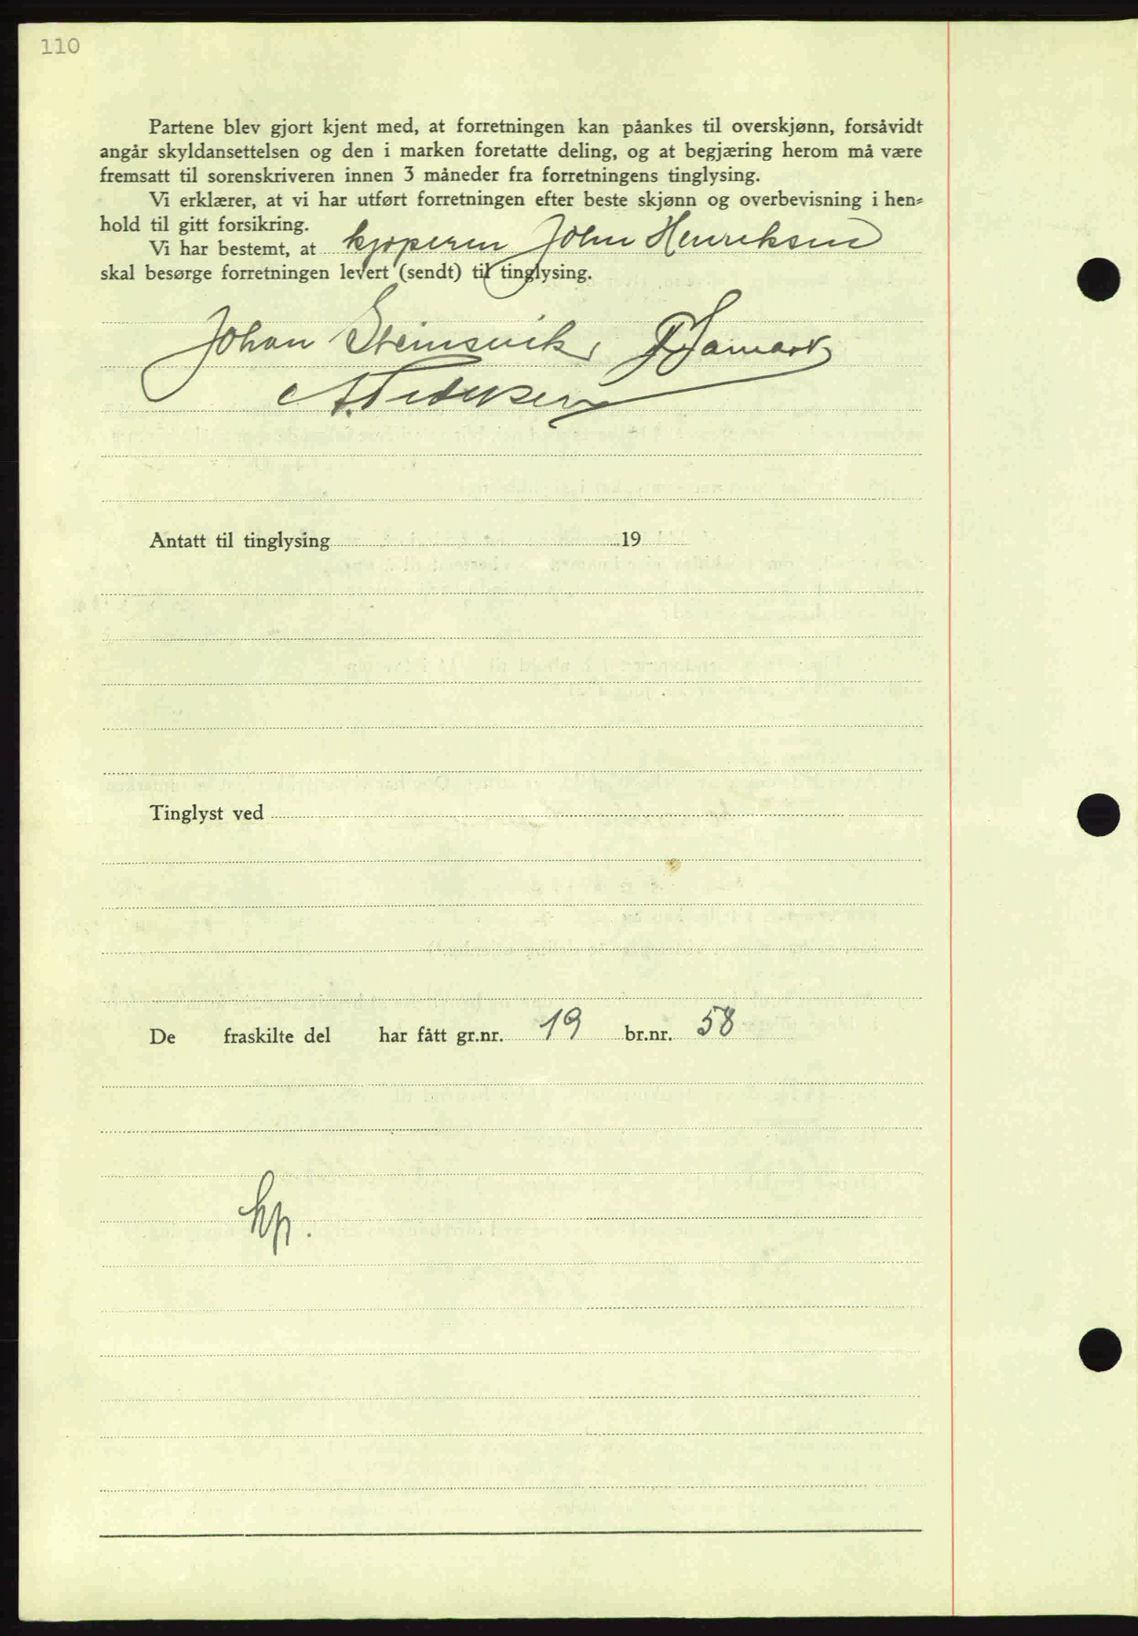 110
Partene blev gjort kjent med, at forretningen kan påankes til overskjønn, forsåvidt
angår skyldansettelsen og den i marken foretatte deling, og at begjæring herom må være
fremsatt til sorenskriveren innen 3 måneder fra forretningens tinglysing.
Vi erklærer, at vi har utført forretningen efter beste skjønn og overbevisning i hen-
hold til gitt forsikring.
Vi har bestemt, at kjøperen John Henriksen
skal besørge forretningen levert (sendt) til tinglysing.
Johan Steinsvik,
A. Pedersen
Antatt til tinglysing 19
Tinglyst ved
De fraskilte del har fått gr.nr. 19 br.nr. 58
kp.